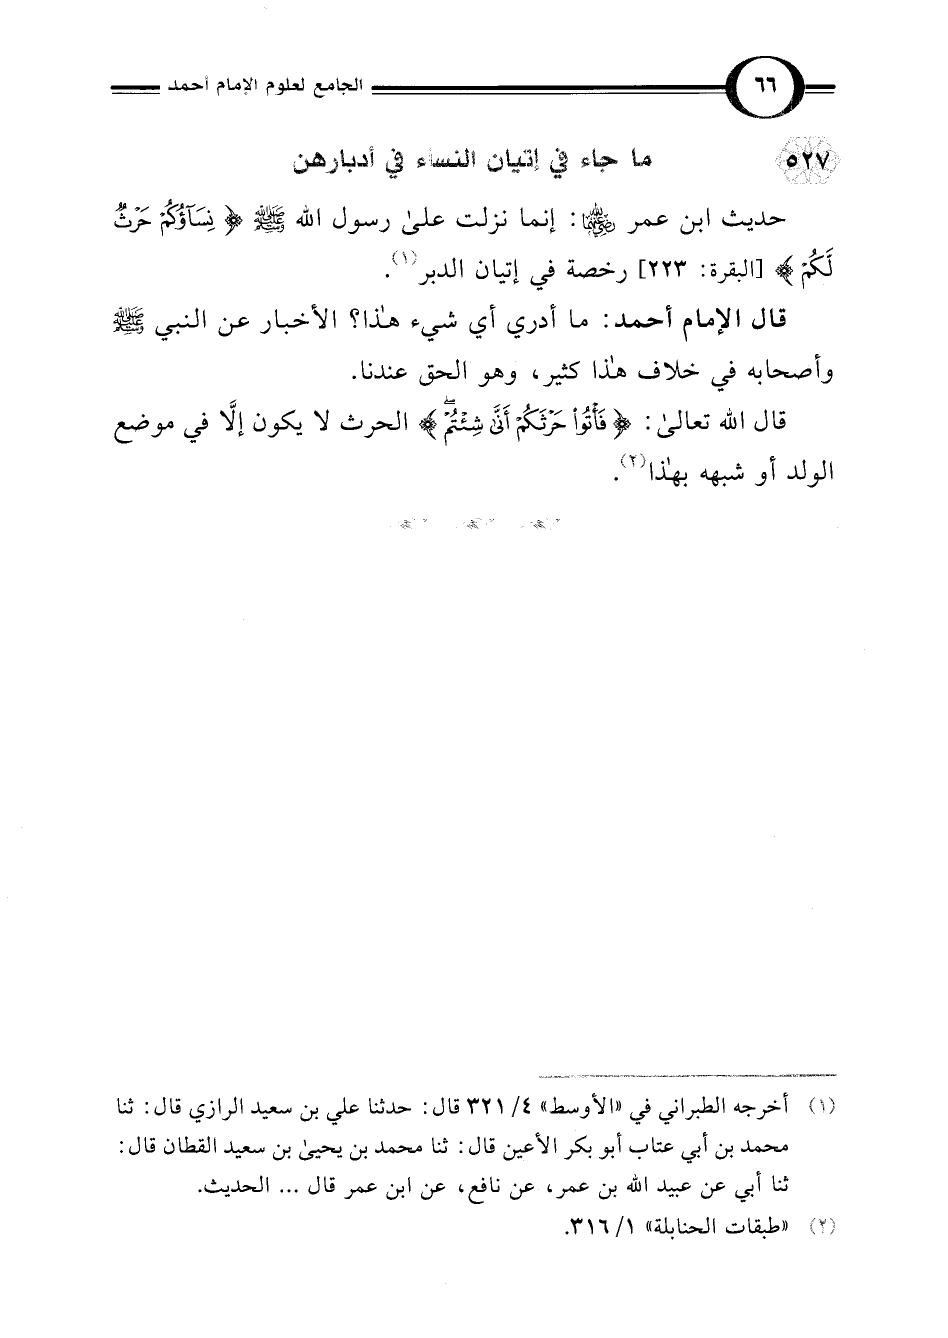 ٦٦ الجامع لعلوم الإمام أحمد
٥٢٧ ما جاء في إتيان النساء في أدبارهن
حديث ابن عمر رضي الله عنهما: إنما نزلت علىٰ رسول الله ﷺ ﴿ نِسَآؤُكُمْ حَرْثٌ
لَّكُمْ ﴾ [البقرة: ٢٢٣] رخصة في إتيان الدبر(١).
قال الإمام أحمد: ما أدري أي شيء هذا؟ الأخبار عن النبي ﷺ
وأصحابه في خلاف هذا كثير، وهو الحق عندنا.
قال الله تعالىٰ: ﴿ فَأْتُوا۟ حَرْثَكُمْ أَنَّىٰ شِئْتُمْ ۖ ﴾ الحرث لا يكون إلَّا في موضع
الولد أو شبهه بهذا(٢).
(١) أخرجه الطبراني في «الأوسط» ٤/ ٣٢١ قال: حدثنا علي بن سعيد الرازي قال: ثنا
محمد بن أبي عتاب أبو بكر الأعين قال: ثنا محمد بن يحيىٰ بن سعيد القطان قال:
ثنا أبي عن عبيد الله بن عمر، عن نافع، عن ابن عمر قال ... الحديث.
(٢) «طبقات الحنابلة» ١/ ٣١٦.